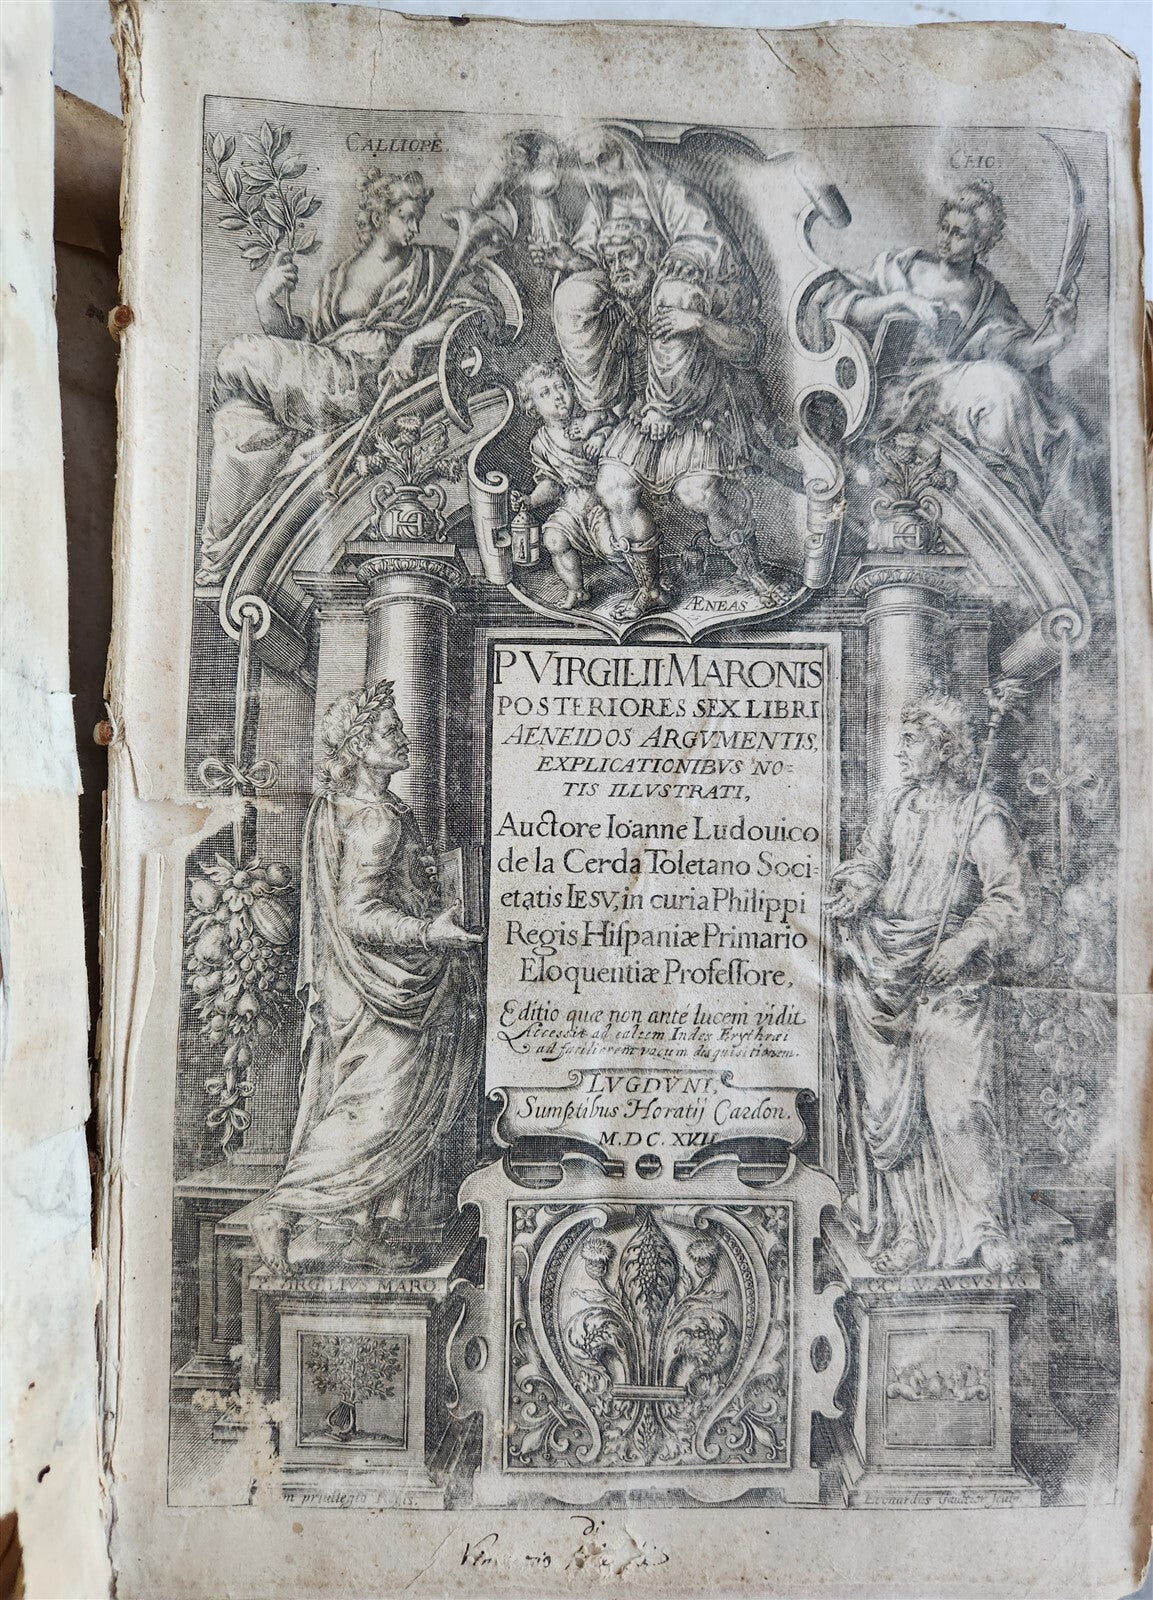 CALLIOPE.
CLIO.
ÆNEAS
P VIRGILII MARONIS
POSTERIORES SEX LIBRI
AENEIDOS ARGVMENTIS,
EXPLICATIONIBVS NO=
TIS ILLVSTRATI,
Auctore Ioanne Ludouico
de la Cerda Toletano Soci=
etatis IESV, in curia Philippi
Regis Hiſpaniæ Primario
Eloquentiæ Profeſſore,
Editio quæ non anté lucem vidit
Accessit ad calcem Index Erythræi
ad faciliorem vocum disquisitionem.
LVGDVNI,
Sumptibus Horatij Cardon.
M.DC.XVII
P. VIRGILIVS MARO
OCTAV. AVGVSTVS
m priuilegio
Leonardus Gaultier Sculp
di